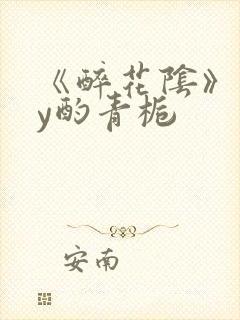 《醉花陰》
y酌青栀
安南